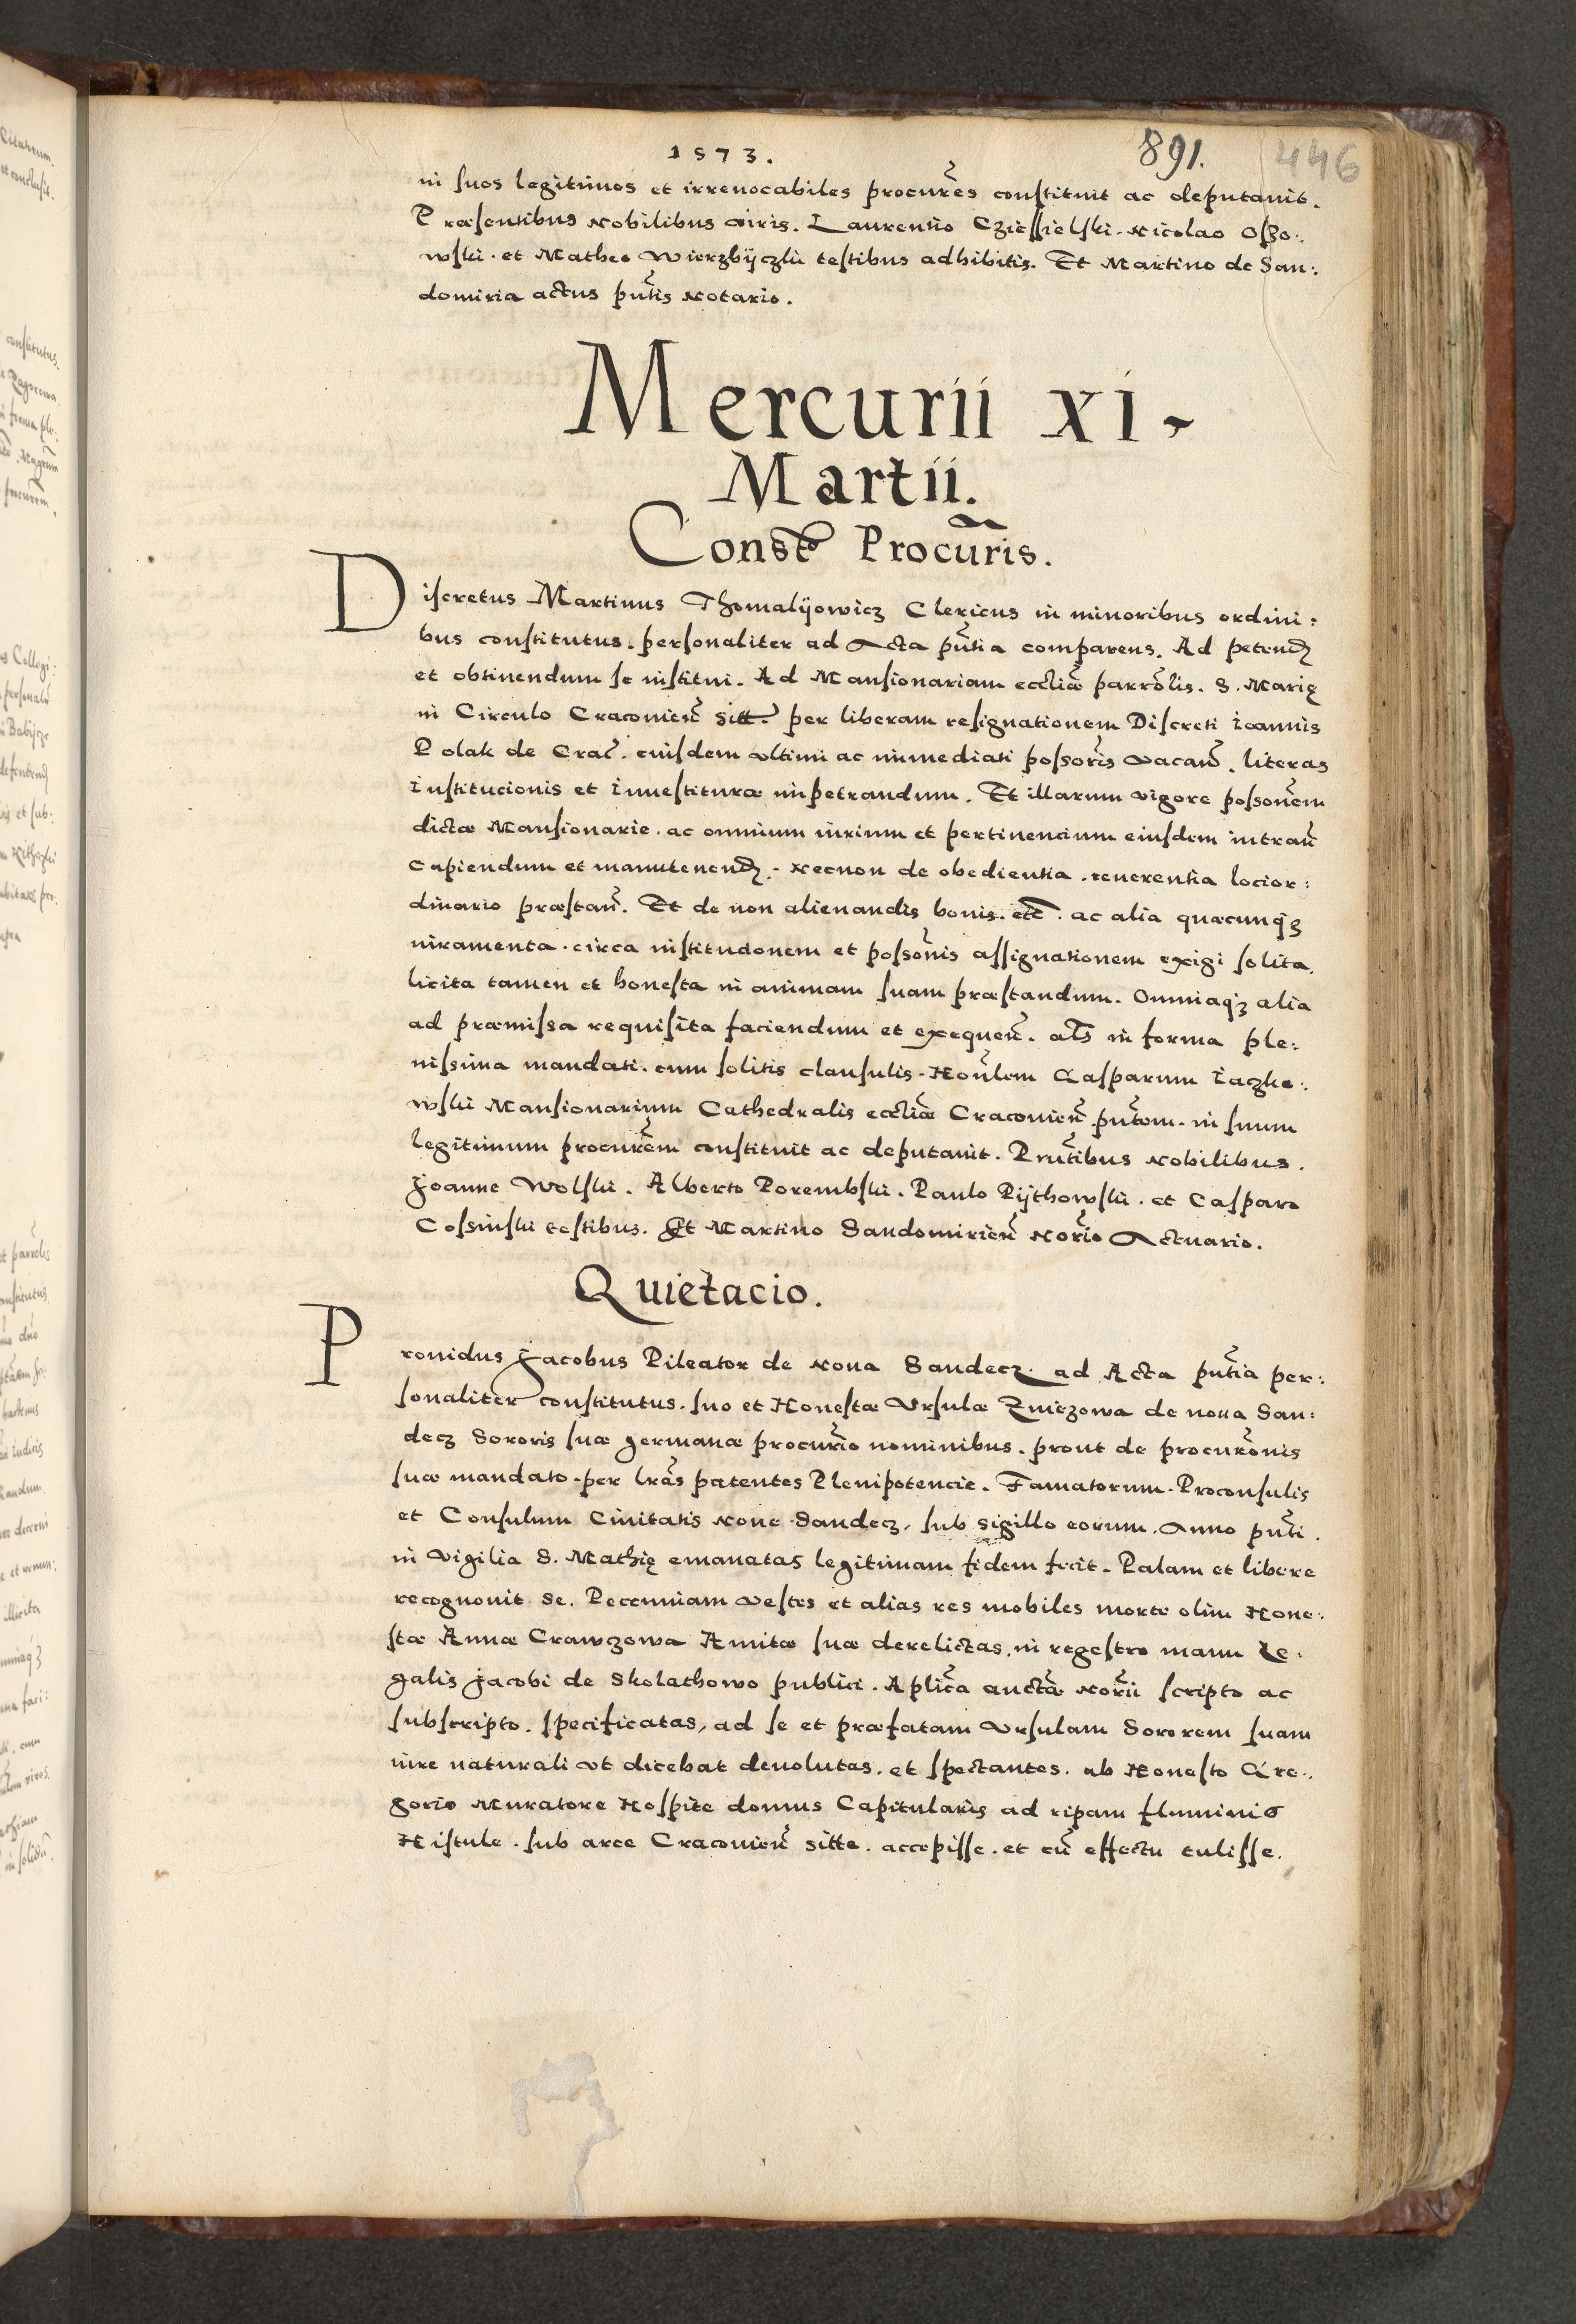 1573.
891.
446
in suos legitimos et irreuocabiles procures constituit ac deputauit.
Præsentibus Nobilibus viris. Laurentio Cziessielski. Nicolao Oszo:
wski. et Matheo Wierzbÿczki testibus adhibitis. Et Martino de San:
domiria actus pñtis Notario.
Mercurii xi
Martii.
Consto Procuris.
Discretus Martinus Thomalÿowicz Clericus in minoribus ordini:
bus constitutus. personaliter ad Acta pñtia comparens. Ad petend
et obtinendum se institui. Ad Mansionariam eccliæ parrolis. S. Marię
in Circulo Cracouień sitt. per liberam resignationem Discreti Ioannis
Polak de Crac. eiusdem vltimi ac immediati possoris vacań. literas
Institucionis et Inuestituræ impetrandum. Et illarum vigore possonem
dictæ Mansionarie. ac omnium iurium et pertinencium eiusdem intrań
capiendum et manutenend. Necnon de obedientia. reuerentia locior:
dinario præstań. Et de non alienandis bonis. etc. ac alia quæcunqꝫ
iuramenta. circa institucionem et possonis assignationem exigi solita.
licita tamen et honesta in animam suam præstandum. Omniaqꝫ alia
ad præmissa requisita faciendum et exequeń. als in forma ple:
nissima mandati. cum solitis clausulis. Honlem Casparum Iaczko:
wski Mansionarium Cathedralis eccliæ Cracouień. pñtem. in suum
legitimum procurem constituit ac deputauit. Prntibus Nobilibus.
Joanne Wolski. Alberto Porembski. Paulo Pÿthowski. et Casparo
Cossinski testibus. Et Martino Sandomirień Norio Actuario.
Quietacio.
Prouidus Jacobus Pileator de Noua Sandecz. ad Acta pñtia per:
sonaliter constitutus. suo et Honestæ Vrsulæ Zniczowa de noua San:
decz Sororis suæ germanæ procurio nominibus. prout de procuronis
suæ mandato. per lras patentes Plenipotencie. Famatorum. Proconsulis
et Consulum Ciuitatis Noue Sandecz. sub sigillo eorum. Anno pñti.
in Vigilia S. Mathię emanatas legitimam fidem fecit. Palam et libere
recognouit se. Pecuniam vestes et alias res mobiles morte olim Hone:
stæ Annæ Crawczowa Amitæ suæ derelictas. in regestro manu
galis Jacobi de Skolathowo publici. Aplica auctã Norii scripto ac
subscripto. specificatas, ad se et præfatam Vrsulam Sororem suam
iure naturali vt dicebat deuolutas. et spectantes. ab Honesto Gre:
gorio Muratore Hospite domus Capitularis ad ripam fluminis
Histule. sub arce Cracouień sitte. accepisse. et cũ effectu tulisse.